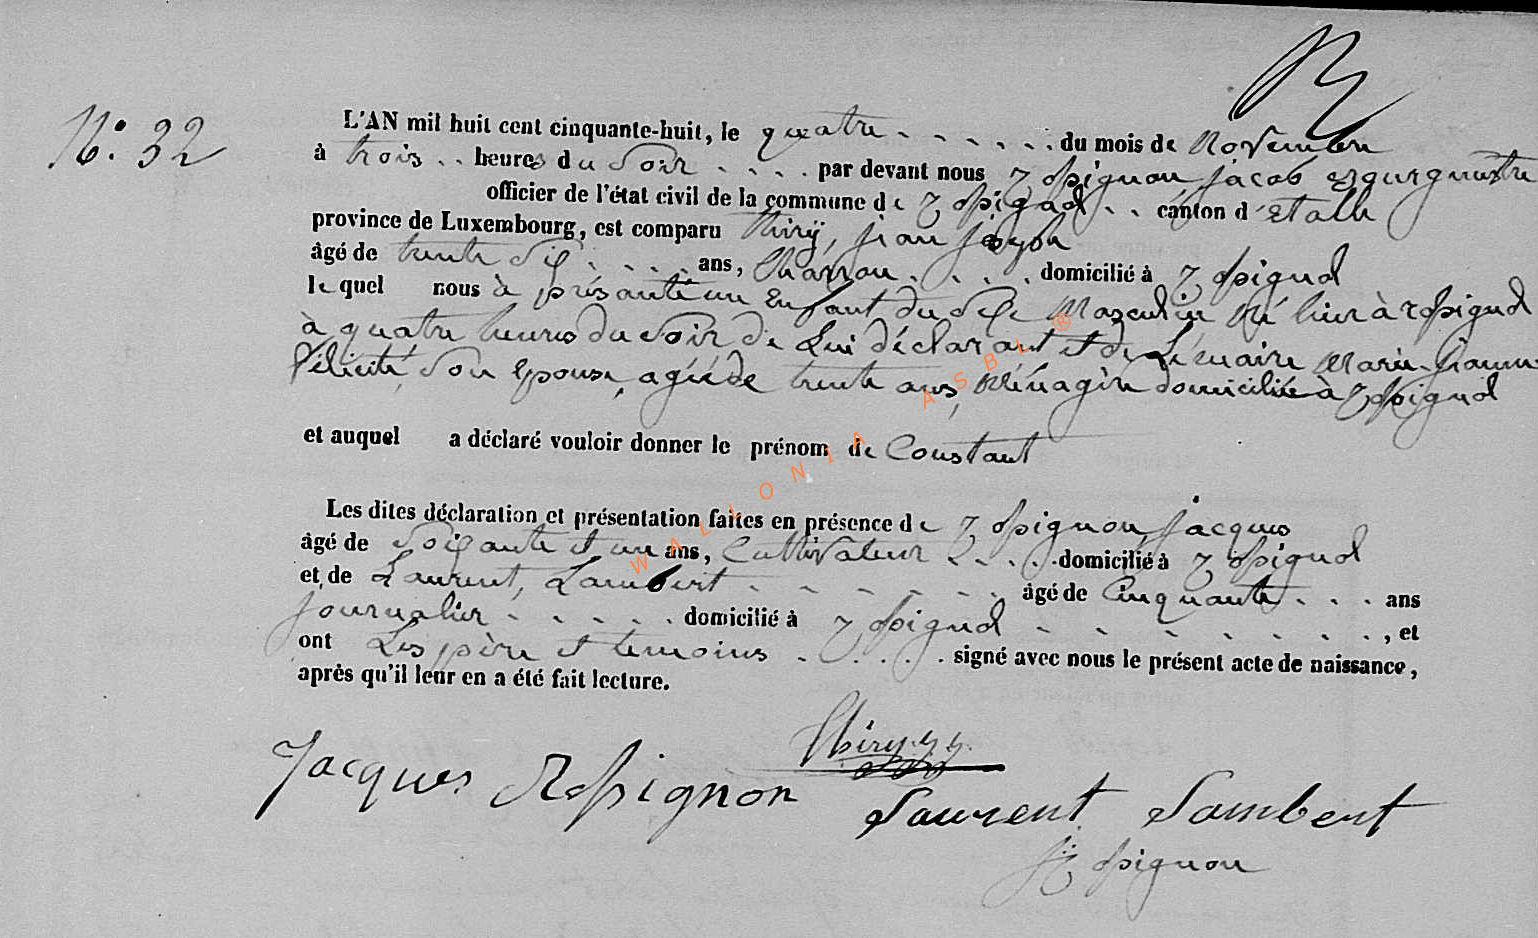 N° 32
L'AN mil huit cent cinquante-huit, le quatre - - - - - - du mois de Novembre
à trois - - heures du Soir - - - - par devant nous Rossignon, jacob Bourguestre
officier de l'état civil de la commune de Rossignol - - canton d'Etalle
province de Luxembourg, est comparu thiry, jean joseph
âgé de trente Six - - - - ans, Charron - - - - domicilié à Rossignol
lequel nous à présenté un Enfant du Sexe Masculin Né hier à rossignol
à quatre heures du Soir de Lui déclarant et de Lemaire Marie-jeanne
félicité, Son Epouse, agée de trente ans, Ménagère domiciliée à Rossignol
et auquel a déclaré vouloir donner le prénom de Constant
Les dites déclaration et présentation faites en présence de Rossignon, jacques
âgé de Soixante et un ans, Cultivateur - - - - domicilié à Rossignol
et de Laurent, Lambert - - - - - - - âgé de Cinquante - - - ans
journalier - - - - - domicilié à Rossignol - - - - - - - - , et
ont Les père et temoins - - - - - signé avec nous le présent acte de naissance,
après qu'il leur en a été fait lecture.
Thiry. j. j.
Jacques Rossignon
Laurent Lambert
jb Rossignon
WALLONIA ASBL ®